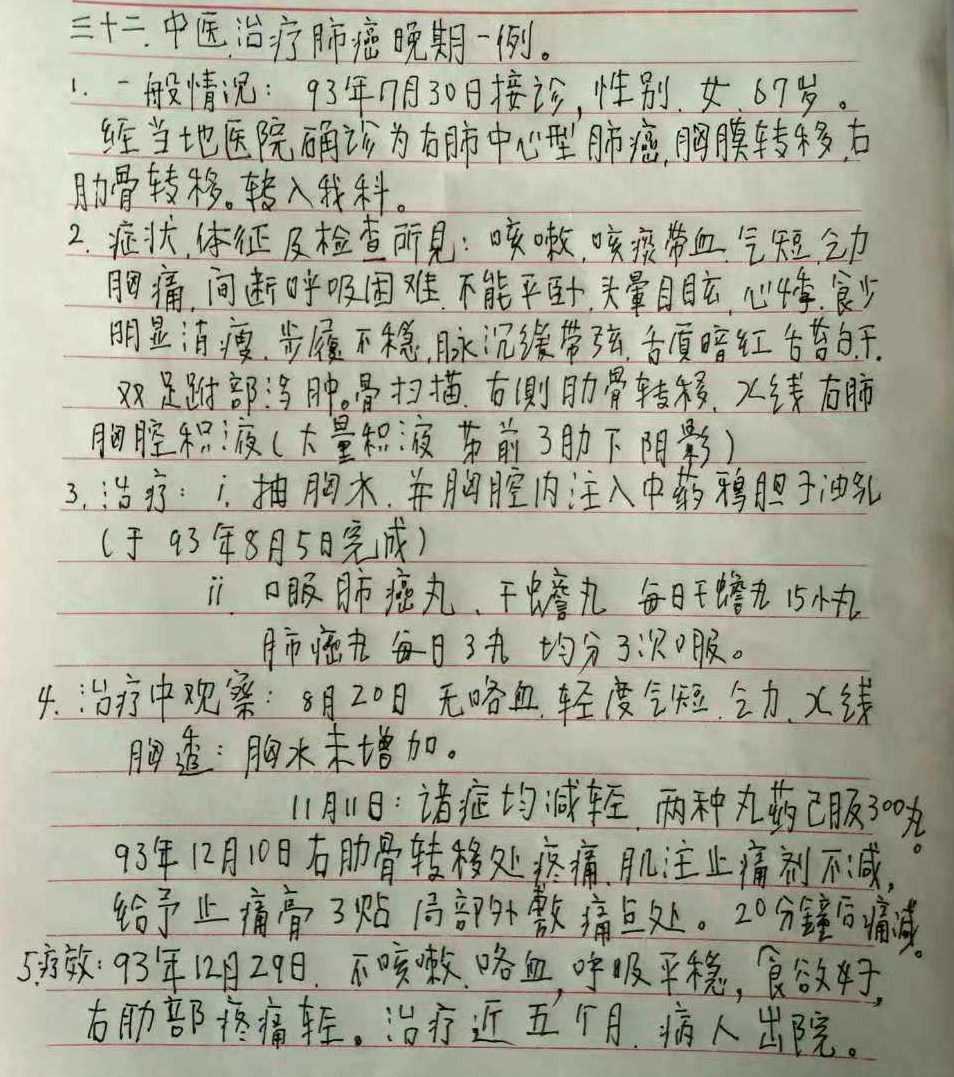 三十二.中医治疗肺癌晚期一例。
1. 一般情况: 93年7月30日接诊,性别.女.67岁。
经当地医院确诊为右肺中心型肺癌,胸膜转移,右
肋骨转移。转入我科。
2. 症状,体征及检查所見: 咳嗽,咳痰带血.气短,乏力
胸痛,间断呼吸困难.不能平卧.头晕目眩,心悸.食少
明显消瘦.步履不稳,脉沉缓带弦.舌质暗红舌苔白干.
双足跗部浮肿。骨扫描.右侧肋骨转移.X线右肺
胸腔积液(大量积液 第前3肋下阴影)
3.治疗: i.抽胸水.并胸腔内注入中药鸦胆子油乳
(于93年8月5日完成)
ii. 口服肺癌丸、干蟾丸 每日干蟾丸15小丸
肺癌丸每日3丸 均分3次口服。
4.治疗中观察: 8月20日 无咯血.轻度气短.乏力.X线
胸透: 胸水未增加。
11月11日: 诸症均减轻.两种丸药已服300丸。
93年12月10日右肋骨转移处疼痛.肌注止痛剂不减,
给予止痛膏3贴 局部外敷痛点处。20分鐘后痛减。
5.疗效: 93年12月29日.不咳嗽.咯血,呼吸平稳,食欲好,
右肋部疼痛轻。治疗近五个月.病人出院。